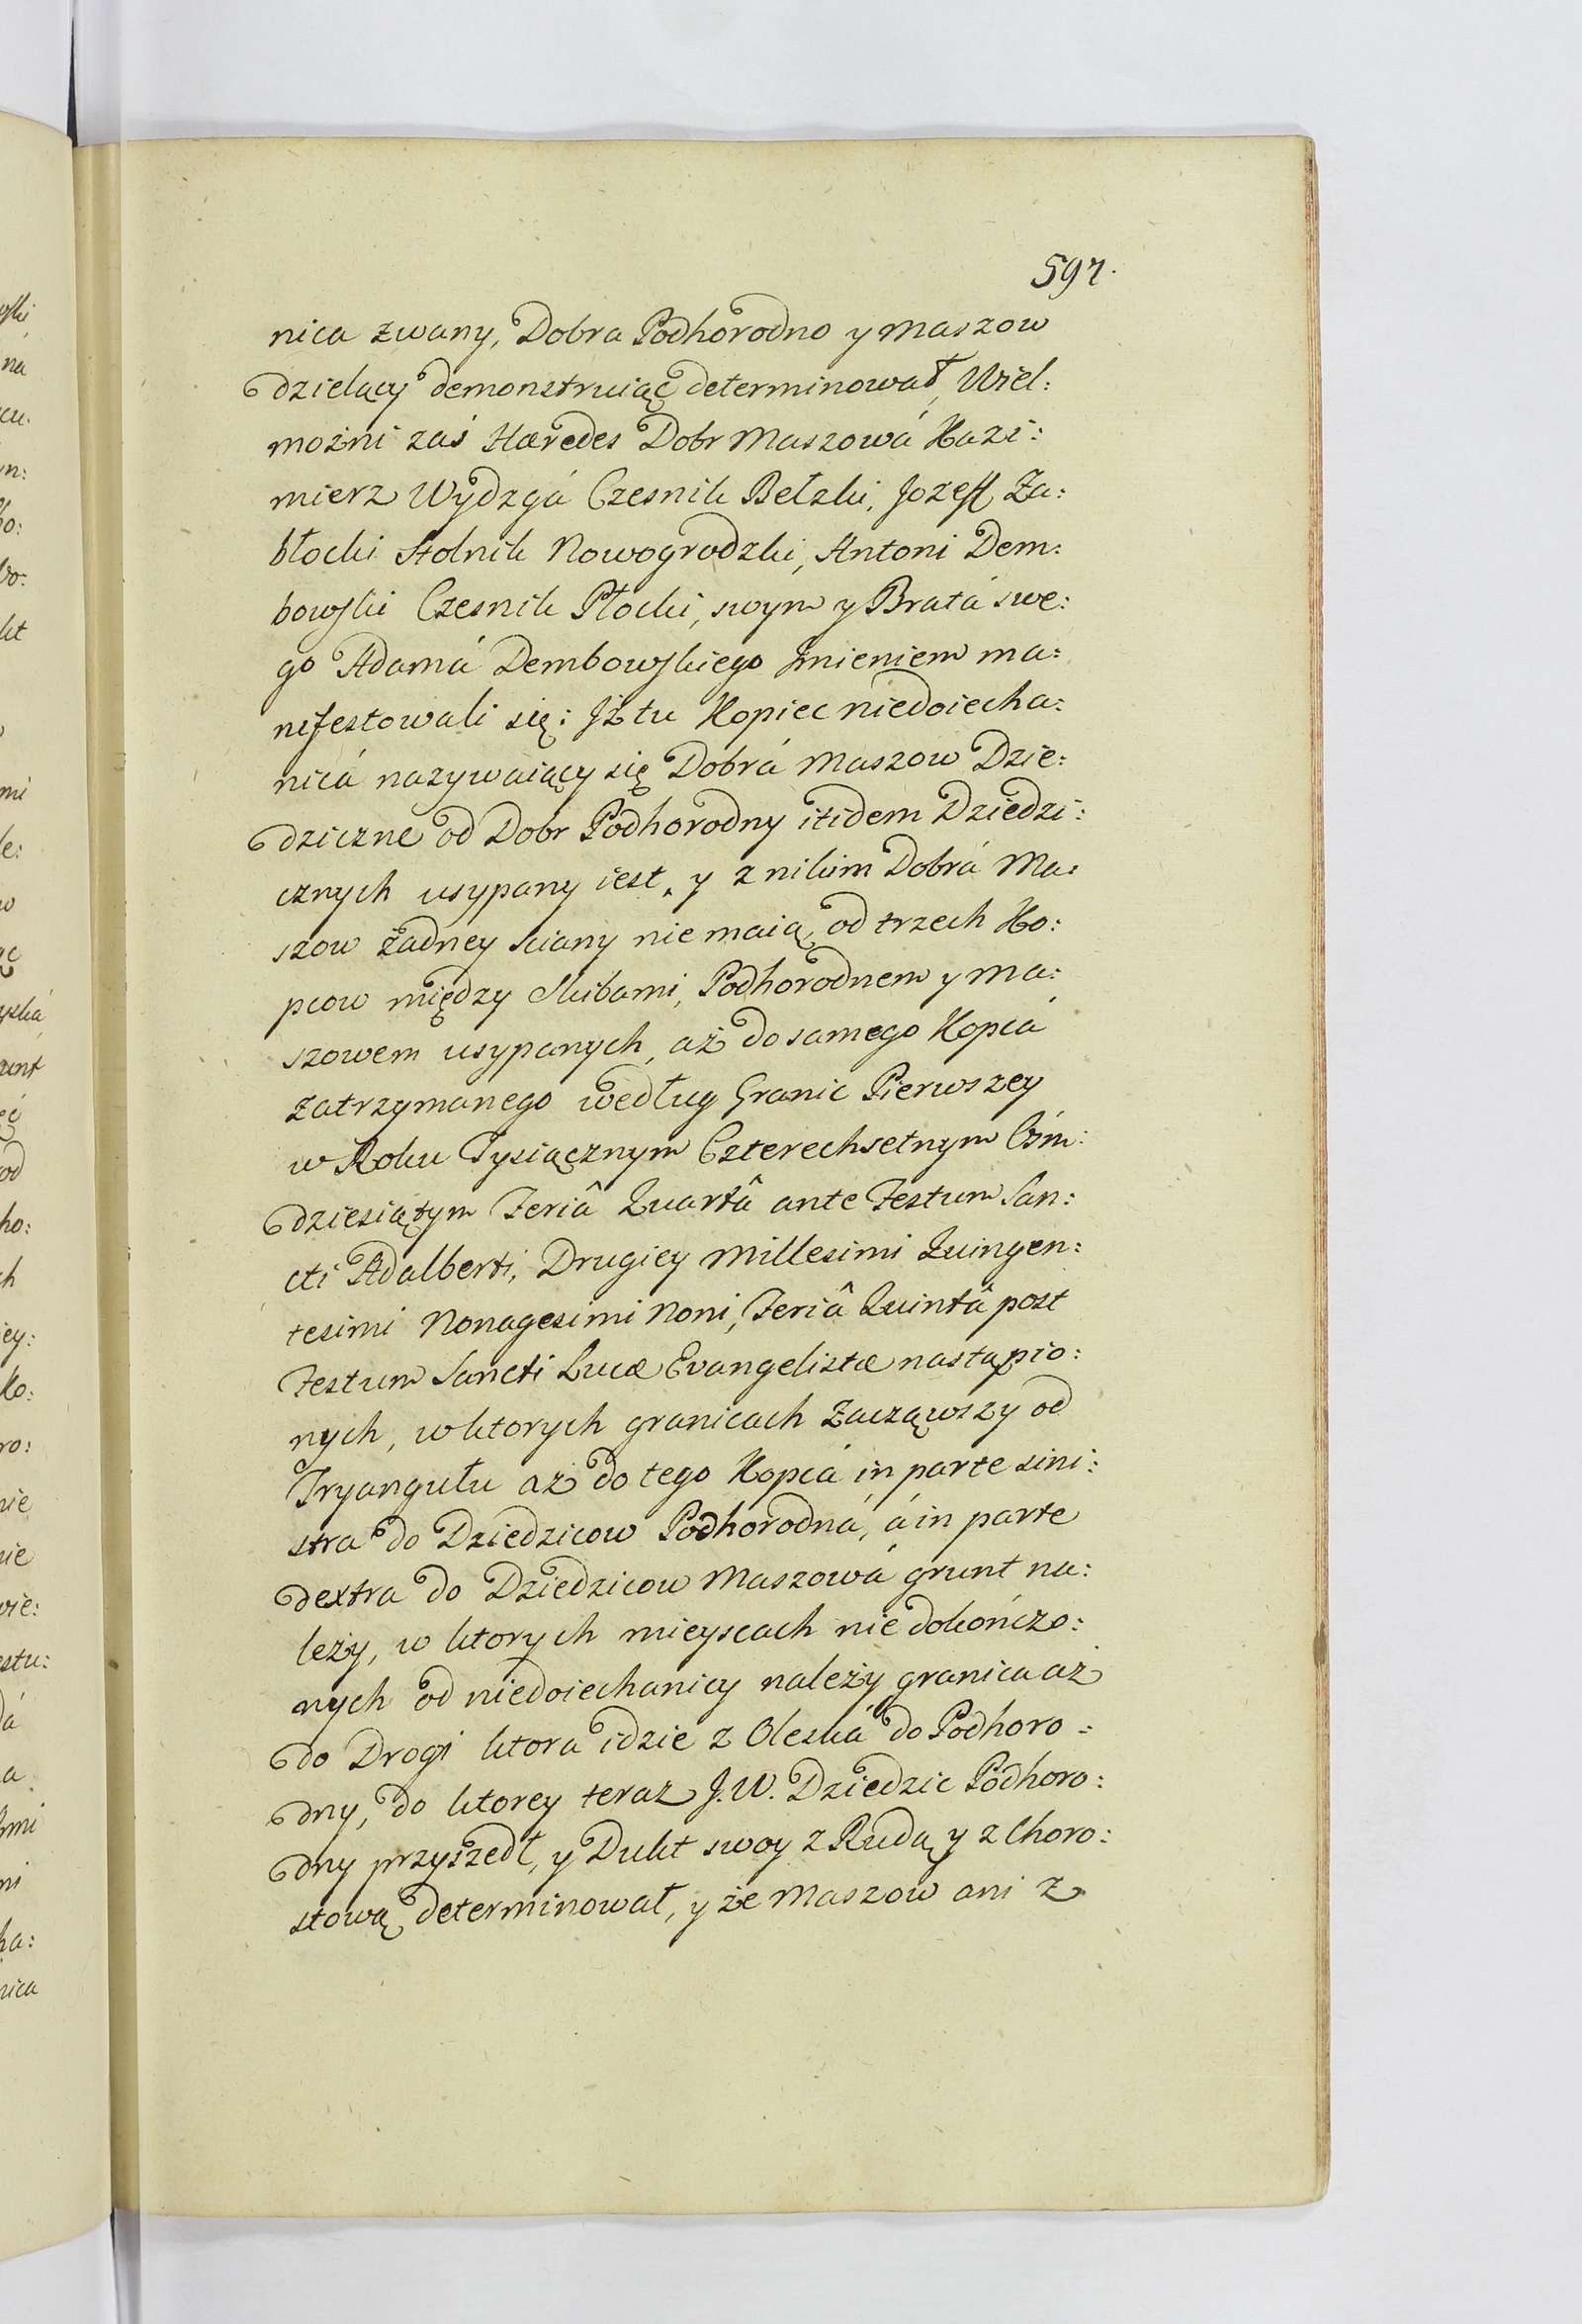 597.
nica zwany, Dobra Podhorodno y Maszow
dzielący demonstruiąc determinował, Wiel:
możni zaś Hæredes Dobr Maszowá Kazi:
mierz Wydzgá Czesnik Bełzki, Jozeff Za:
błocki Stolnik Nowogrodzki, Antoni Dem:
bowski Czesnik Płocki, swym y Brátá swe:
go Adamá Dembowskiego Jmieniem ma:
nifestowali się: Jż tu Kopiec niedoiecha:
nicá nazywaiący się Dobrá Maszow Dzie:
dziczne od Dobr Podhorodny itidem Dziedzi:
cznych usypany iest, y z nikim Dobrá Ma:
szow żadney sciany nie maią, od trzech Ko:
pcow między Skibami, Podhorodnem y Ma:
szowem usypanych, aż do samego Kopcá
zatrzymanego według Granic Pierwszey
w Roku Tysiącznym Czterechsetnym Osm:
dziesiątym Feriâ Quartâ ante Festum San:
cti Adalberti, Drugiey Millesimi Quingen:
tesimi Nonagesimi Noni, Feriâ Quintâ post
Festum Sancti Lucæ Evangelistæ nastąpio:
nych, w ktorych granicach Zacząwszy od
Tryangułu aż do tego Kopcá in parte sini:
stra do Dziedzicow Podhorodná, á in parte
dextra do Dziedzicow Maszowá grunt na:
leży, w ktorych mieyscach nie dokończo:
nych od niedoiechanicy należy granica aż
do Drogi ktora idzie z Oleská do Podhoro:
dny, do ktorey teraz J.W. Dziedzic Podhoro:
dny przyszedł, y Dukt swoy z Rudą y z Choro:
stową determinował, y że Maszow ani z